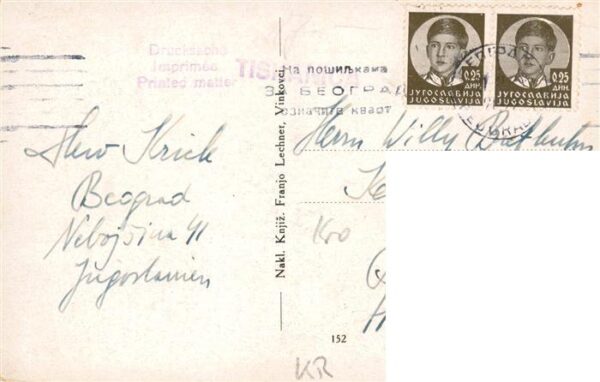 Drucksache
Imprimée
Printed matter
На пошиљкама
ЗА БЕОГРАД
означите кварт
0.25
ДИН.
ЈУГОСЛАВИЈА
JUGOSLAVIJA
0.25
ДИН.
ЈУГОСЛАВИЈА
JUGOSLAVIJA
BEOGRAD
Krick
Beograd
Nebojšina 41
Jugoslawien
Nakl. Knjiž. Franjo Lechner, Vinkovci
Herrn Willy
Kro
152
KR